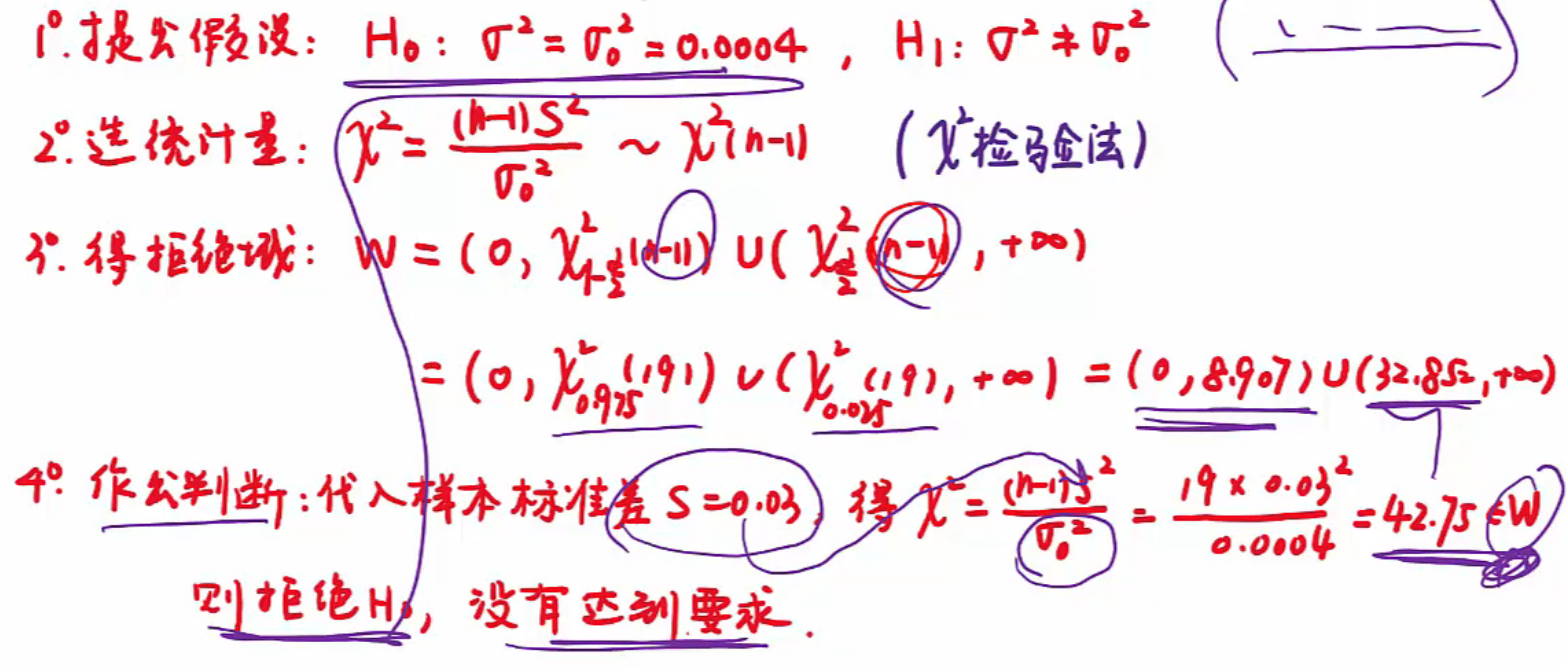 1°. 提出假设: H₀: σ² = σ₀² = 0.0004, H₁: σ² ≠ σ₀²
2°. 选统计量: χ² = (n-1)S² / σ₀² ~ χ²(n-1) (χ²检验法)
3°. 得拒绝域: W = (0, χ²_{1-α/2}(n-1)) ∪ (χ²_{α/2}(n-1), +∞)
= (0, χ²_{0.975}(19)) ∪ (χ²_{0.025}(19), +∞) = (0, 8.907) ∪ (32.852, +∞)
4°. 作出判断: 代入样本标准差 S=0.03, 得 χ² = (n-1)S² / σ₀² = 19 × 0.03² / 0.0004 = 42.75 ∈ W
则拒绝H₀, 没有达到要求.